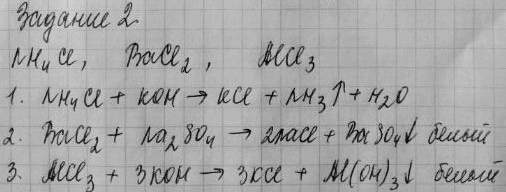 Задание 2.
NH₄Cl, BaCl₂, AlCl₃
1. NH₄Cl + KOH → KCl + NH₃↑ + H₂O
2. BaCl₂ + Na₂SO₄ → 2NaCl + BaSO₄↓ белый
3. AlCl₃ + 3KOH → 3KCl + Al(OH)₃↓ белый